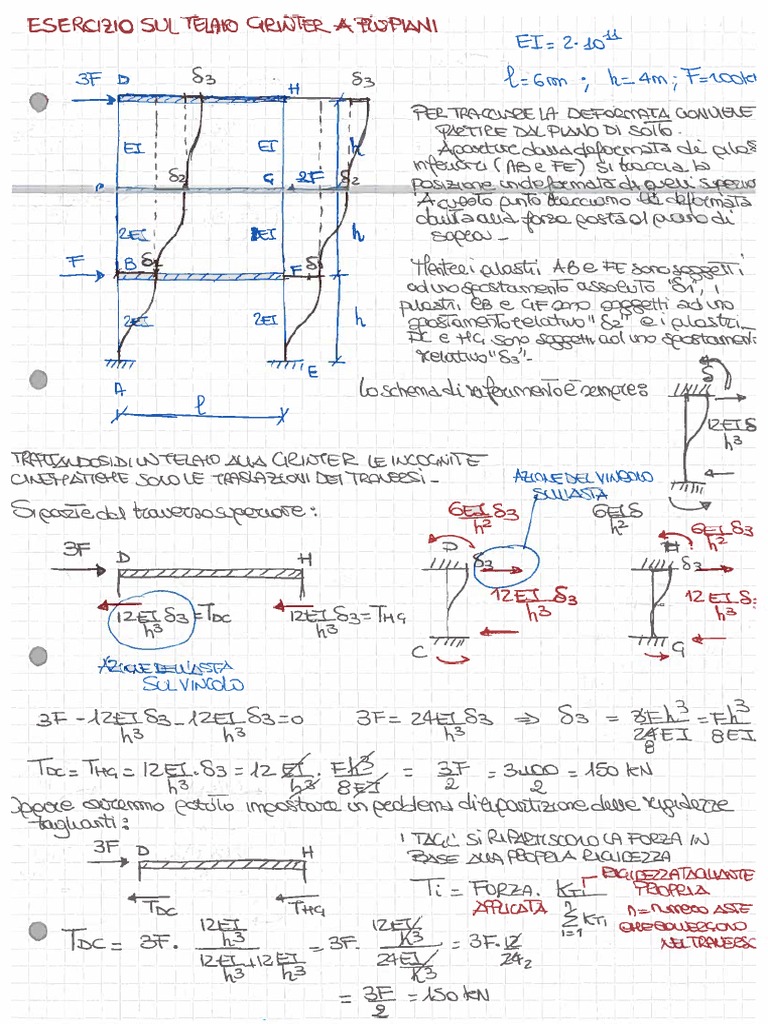 ESERCIZIO SUL TELAIO GRINTER A PIÙ PIANI
EI = 2·10¹¹
l = 6m ; h = 4m ; F = 100k
3F D δ3 H δ3
EI EI h
δ2 G 2F δ2
2EI h
F B δ1 F δ
2EI 2EI h
A E
l
PER TRACCIARE LA DEFORMATA CONVIENE
PARTIRE DAL PIANO DI SOTTO.
A partire dalla deformata dei pilas
inferiori (AB e FE) si traccia la
posizione indeformata di quelli superio
A questo punto tracciamo la deformata
dovuta alla forza posta al piano di
sopra –
Mentre i pilastri AB e FE sono soggetti
ad uno spostamento assoluto "δ1", i
pilastri CB e GF sono soggetti ad uno
spostamento relativo "δ2" e i pilastri
DC e HG sono soggetti ad uno spostament
relativo "δ3" –
Lo schema di riferimento è sempre:
δ
12EIδ
h³
TRATTANDOSI DI UN TELAIO ALLA GRINTER LE INCOGNITE
CINEMATICHE SOLO LE TRASLAZIONI DEI TRAVERSI –
AZIONE DEL VINCOLO
SULL'ASTA
Si parte dal traverso superiore:
6EI δ3
h²
6EIδ
h²
6EI δ3
h²
3F D H
D δ3 H δ3
12EI δ3 = TDC
h³
12EI δ3 = THG
h³
12EI δ3
h³
12EI δ
h³
C G
AZIONE DELL'ASTA
SUL VINCOLO
3F - 12EI δ3 - 12EI δ3 = 0
h³ h³
3F = 24EI δ3 ⇒ δ3 = 3Fh³ = Fh³
h³ 24EI 8EI
8
TDC = THG = 12EI · δ3 = 12 EI · Fh³ = 3F = 3·100 = 150 kN
h³ h³ 8EI 2 2
Oppure avremmo potuto impostare un problema di ripartizione delle rigidezze
taglianti:
3F D H
TDC THG
I TAGLI SI RIPARTISCONO LA FORZA IN
BASE ALLA PROPRIA RIGIDEZZA
Ti = FORZA · KTi
APPLICATA
n
∑ KTi
i=1
RIGIDEZZA TAGLIANTE
PROPRIA
n = NUMERO ASTE
CHE CONVERGONO
NEL TRAVERSO
TDC = 3F · 12EI/h³ = 3F · 12EI/h³ = 3F · 12
12EI/h³ + 12EI/h³ 24EI/h³ 24 2
= 3F = 150 kN
2